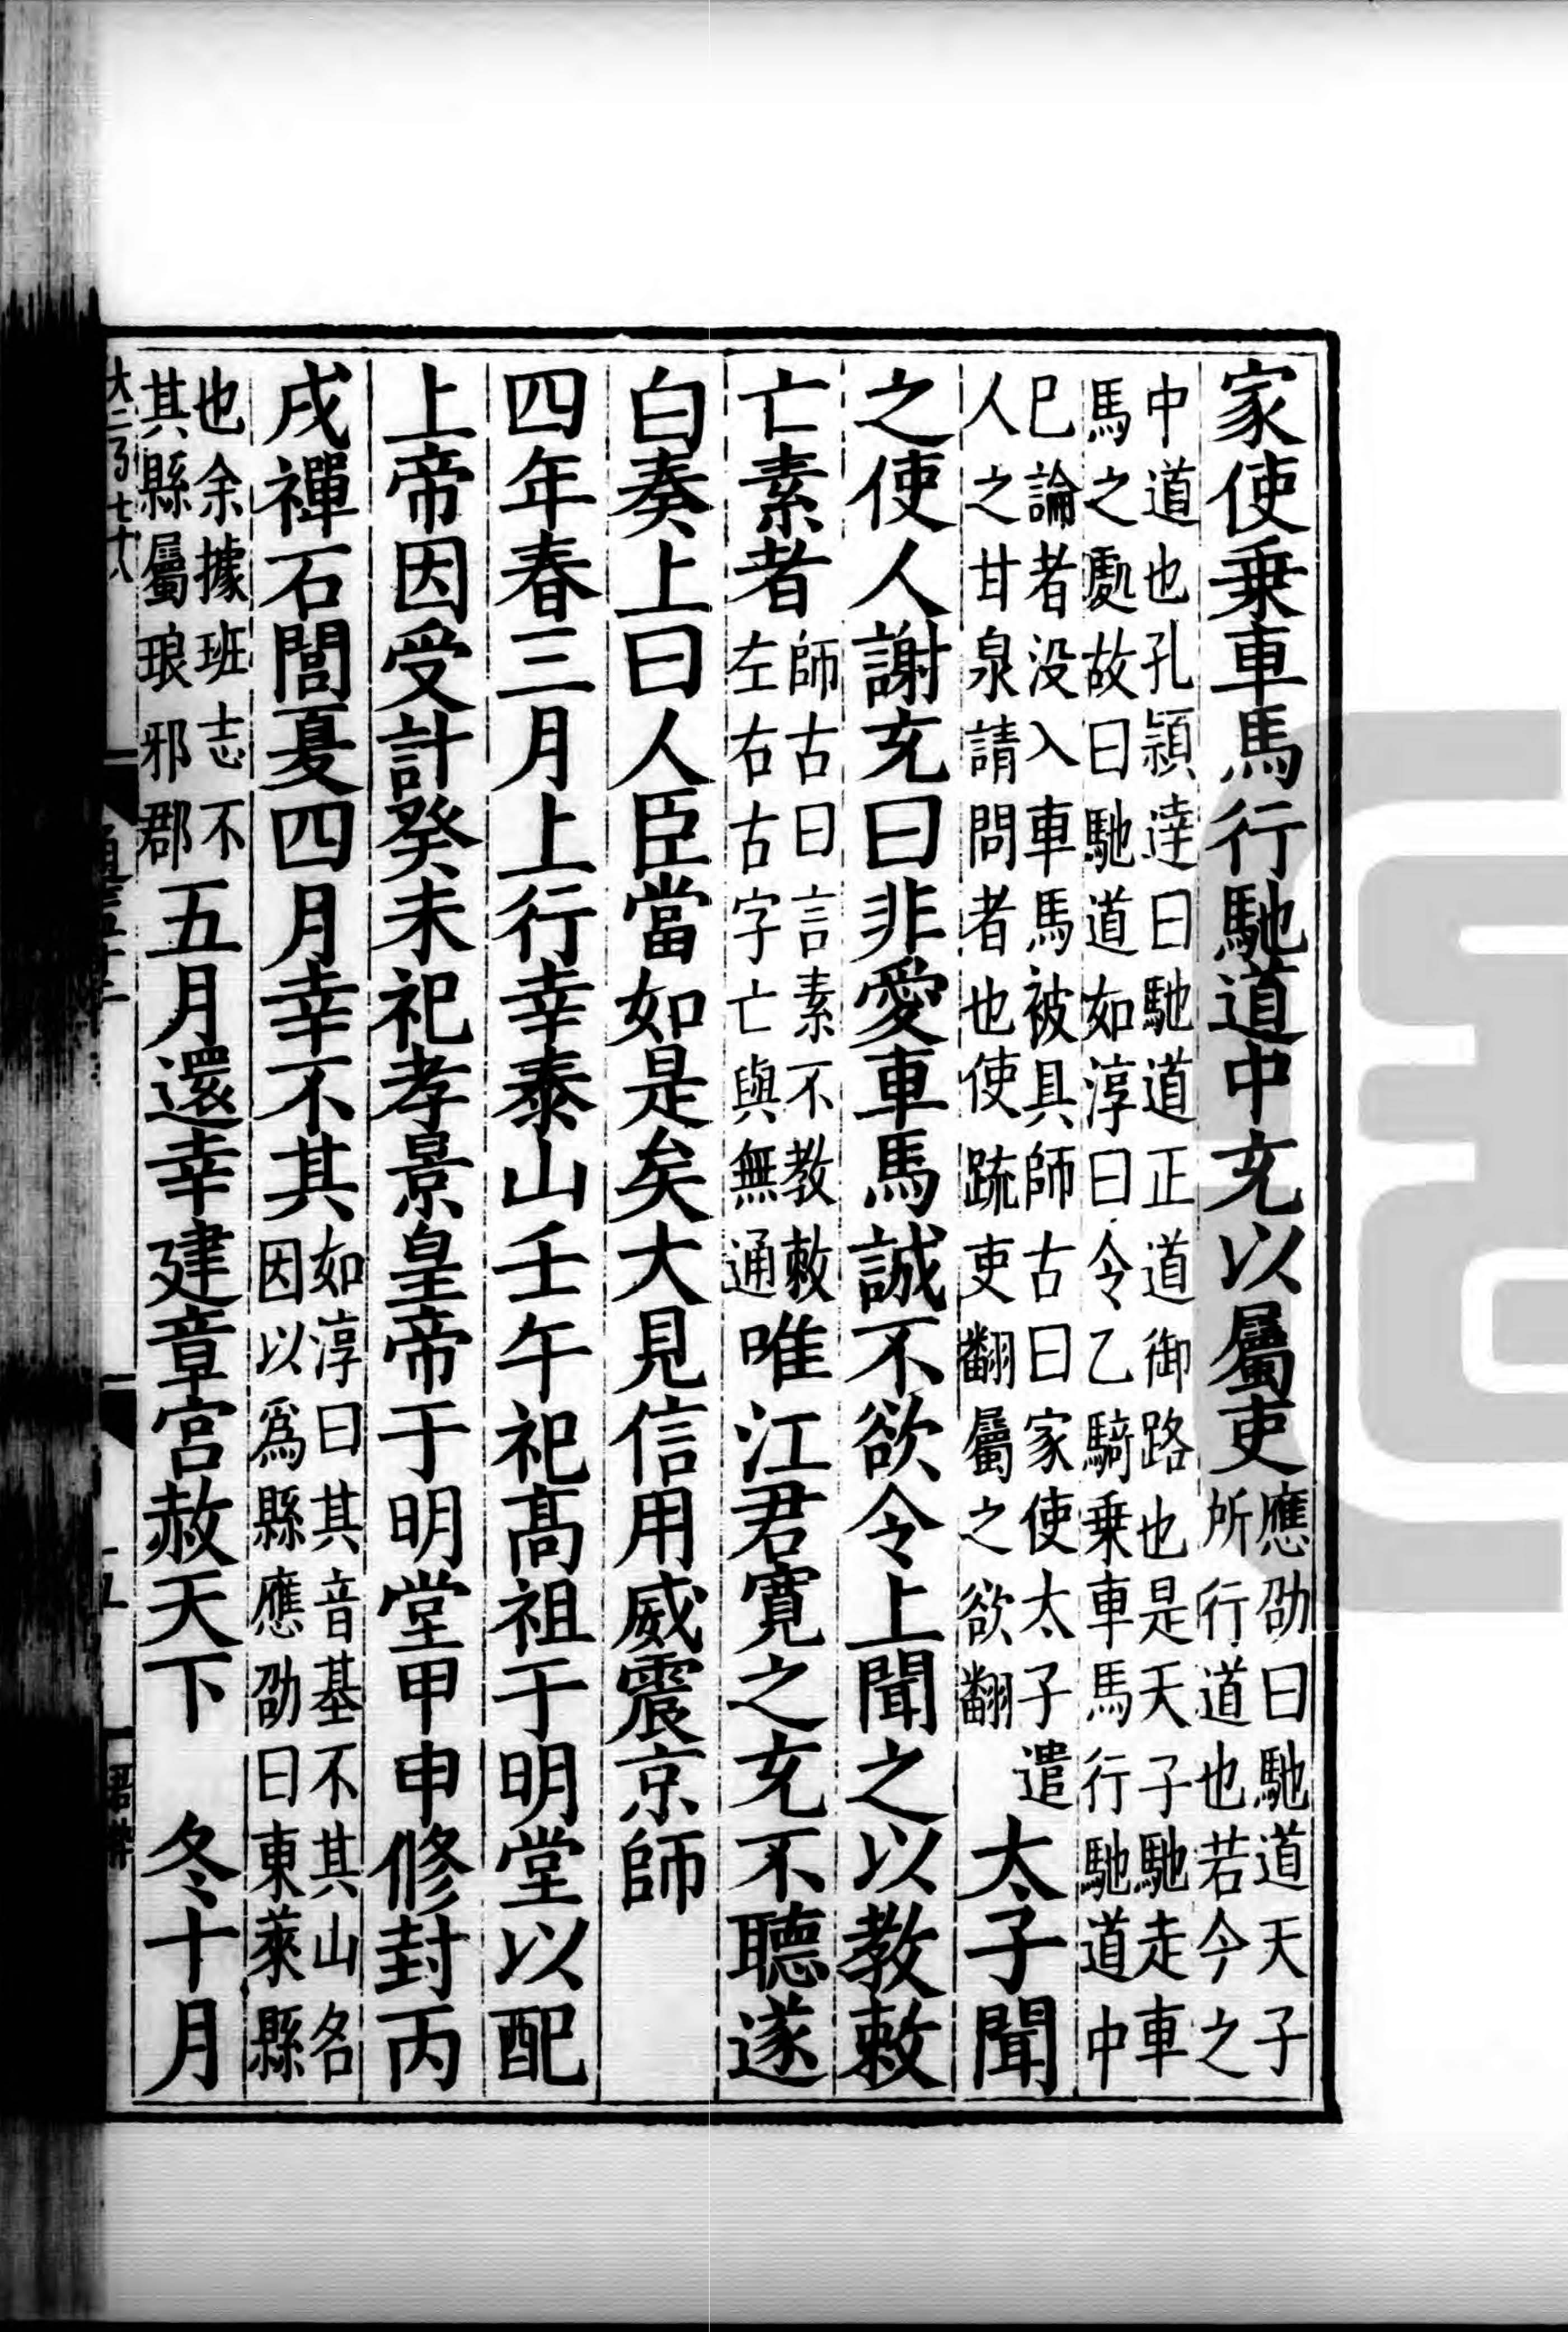 家使乗車馬行馳道中充以屬吏應劭曰馳道天子所行道也若今之
中道也孔穎達曰馳道正道御路也是天子馳走車馬之處故曰馳道如淳曰令乙騎乗車馬行馳道中
已論者没入車馬被具師古曰家使太子遣人之甘泉請問者也使䟽吏翻屬之欲翻太子聞
之使人謝充曰非愛車馬誠不欲令上聞之以教敕
亡素者師古曰言素不教敕左右古字亡與無通唯江君寛之充不聽遂
白奏上曰人臣當如是矣大見信用威震京師
四年春三月上行幸泰山壬午祀髙祖于明堂以配
上帝因受計癸未祀孝景皇帝于明堂甲申修封丙
戌禪石閭夏四月幸不其如淳曰其音基不其山名因以爲縣應劭曰東萊縣
也余據班志不其縣屬琅邪郡五月還幸建章宫赦天下　冬十月